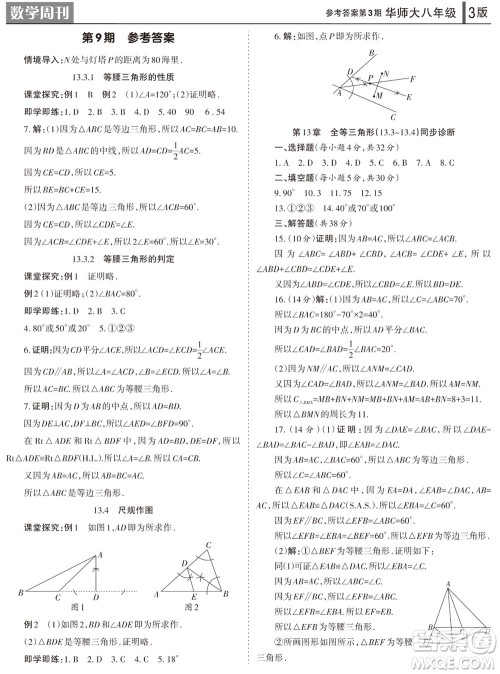 数学周刊
参考答案第3期 华师大八年级 3版
第9期 参考答案
情境导入:N处与灯塔P的距离为80海里.
13.3.1 等腰三角形的性质
课堂探究:例1 B 例2 (1)∠A=120°;(2)证明略.
即学即练:1.D 2.B 3.D 4.20° 5.40° 或90° 6.54
7.解:(1)因为△ABC是等边三角形,所以AC=BC=AB=10.
因为BD是△ABC的中线,所以AD=CD=1/2AC=5.
因为CE=CD,所以CE=5.
(2)因为△ABC是等边三角形,所以∠ACB=60°.
因为CE=CD,所以∠CDE=∠E.
因为∠ACB=∠CDE+∠E,所以2∠E=60°,所以∠E=30°.
13.3.2 等腰三角形的判定
课堂探究:例1 证明略.
例2 (1)证明略;(2)∠BAC=80°.
即学即练:1.D 2.B 3.①②③
4.80° 或50° 或20° 5.①②③
6.证明:因为CD平分∠ACE,所以∠ACD=∠ECD=1/2∠ACE.
因为CD∥AB,所以∠A=∠ACD,∠B=∠ECD,所以∠A=∠B,
所以AC=BC,所以△ABC是等腰三角形.
7.证明:(1)因为D是AB的中点,所以AD=BD.
因为DE⊥AC,DF⊥BC,所以∠AED=∠BFD=90°.
在Rt△ADE和Rt△BDF中,因为AD=BD,DE=DF,所以
Rt△ADE≌Rt△BDF(H.L.),所以∠A=∠B.
(2)因为∠A=∠B,所以AC=BC.因为AB=BC,所以AB=BC=AC.
所以△ABC是等边三角形.
13.4 尺规作图
课堂探究:例1 如图1,AD即为所求作.
A
B C D
图1
A
D
B E C
图2
例2 (1)如图2,BD和DE即为所求作.
(2)△BDE是等腰三角形.证明略.
即学即练:1.D 2.D 3.D 4.B 5.①②③
6.解:如图,点P即为所求作.
D
A P M
N
第13章 全等三角形(13.3~13.4)同步诊断
一、选择题(每小题4分,共32分)
1.A 2.D 3.D 4.A 5.D 6.D 7.C 8.C
二、填空题(每小题5分,共30分)
9.90° 10.3 11.75° 12.15
13.①②③ 14.40° 或70° 或100°
三、解答题(共38分)
15.(10分)证明:因为AB=AC,所以∠ABC=∠ACB.
因为 ∠ABC=∠ABD+∠CBD,∠ACB=∠ACD+∠BCD,
∠ABD=∠ACD,所以∠CBD=∠BCD,所以BD=CD.
又因为∠BDC=60°,所以△BCD是等边三角形.
16.(14分)解:(1)因为AB=AC,所以∠B=∠C=70°.
所以∠BAC=180°-70°×2=40°.
因为D是BC的中点,所以∠BAD=1/2∠BAC=20°.
(2)因为NM∥AC,所以∠ANM=∠NAC.
因为∠BAD=∠NAC,所以∠BAD=∠ANM,所以AM=NM.
所以C△BMN=MB+BN+NM=MB+BN+AM=AB+BN=8+3=11.
所以△BMN的周长为11.
17.(14分)(1)证明:因为△ABC、△ADE是等边三
角形,所以AE=AD,AB=AC,∠EAD=∠BAC=∠ABC=∠C=60°.
所以∠EAB=∠DAC.
在△EAB和△DAC中,因为 EA=DA,∠EAB=∠DAC,AB=
AC,所以△EAB≌△DAC(S.A.S.),所以∠EBA=∠C=60°.
因为EF∥BC,所以∠EFB=∠ABC=60°.
所以△BEF为等边三角形.
(2)解:①△BEF为等腰三角形.理由如下:
同(1)可证∠EBA=∠C.
因为AB=AC,所以∠ABC=∠C.
因为EF∥BC,所以∠EFB=∠ABC.
所以∠EBA=∠EFB,所以BE=EF.
所以△BEF为等腰三角形.
②所画图形如图所示,△BEF为等腰
三角形.
A
B C